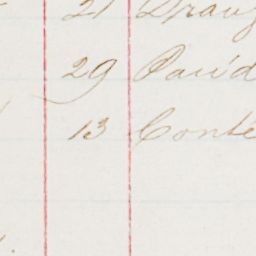 21 Draug
29 Pav'd
13 Conte